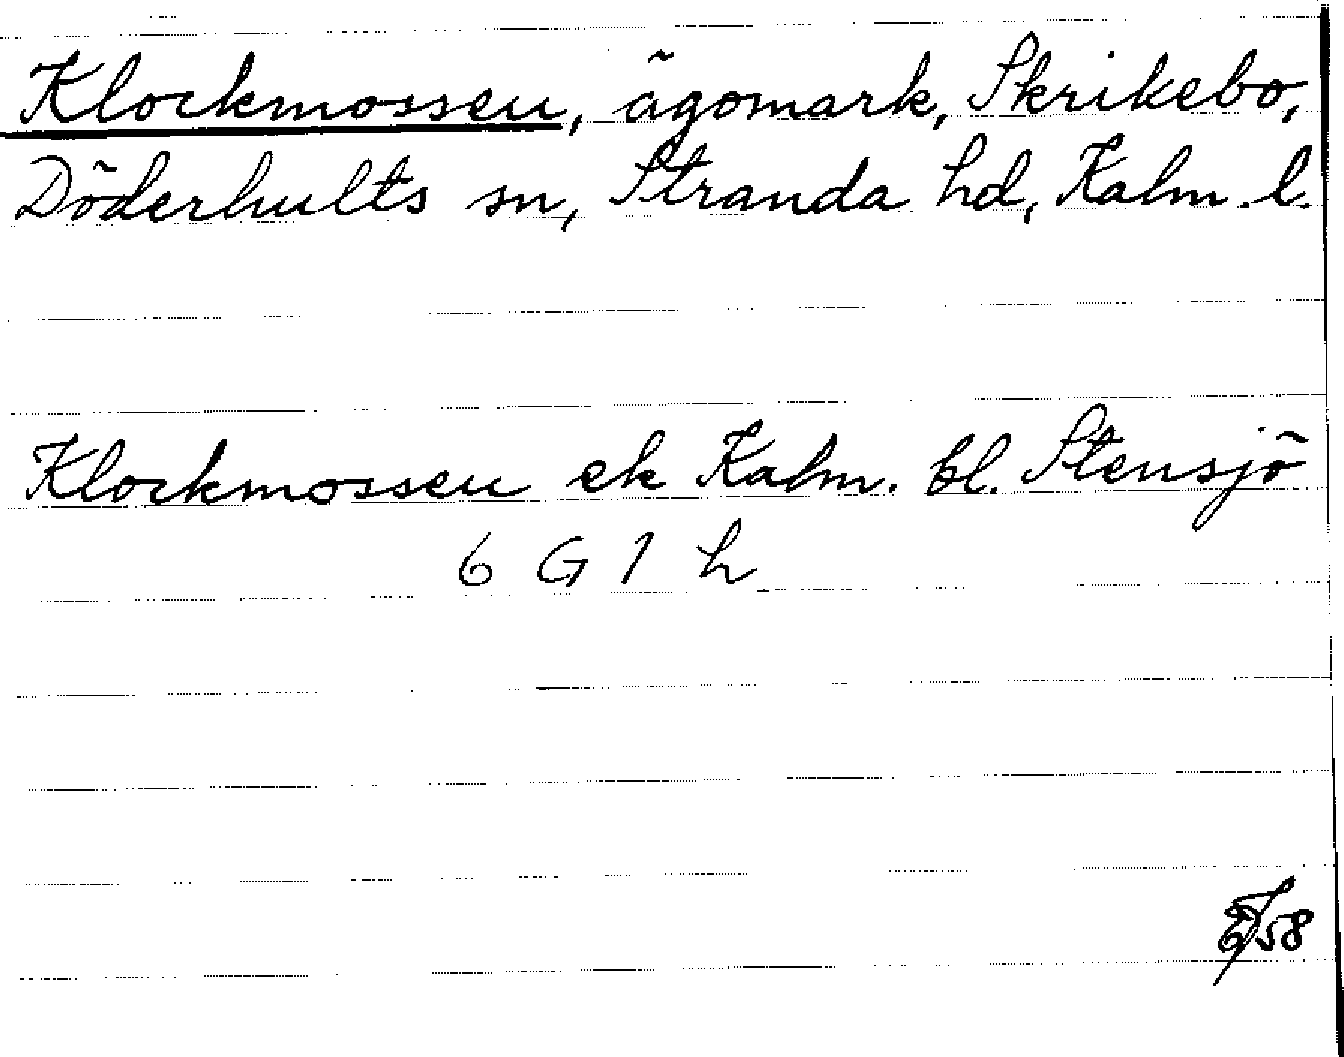 Klockmossen, ägomark, Skrikebo,
Döderhults sn, Stranda hd, Kalm. l.
Klockmossen ek Kalm. bl. Stensjö
6 G 1 h
58